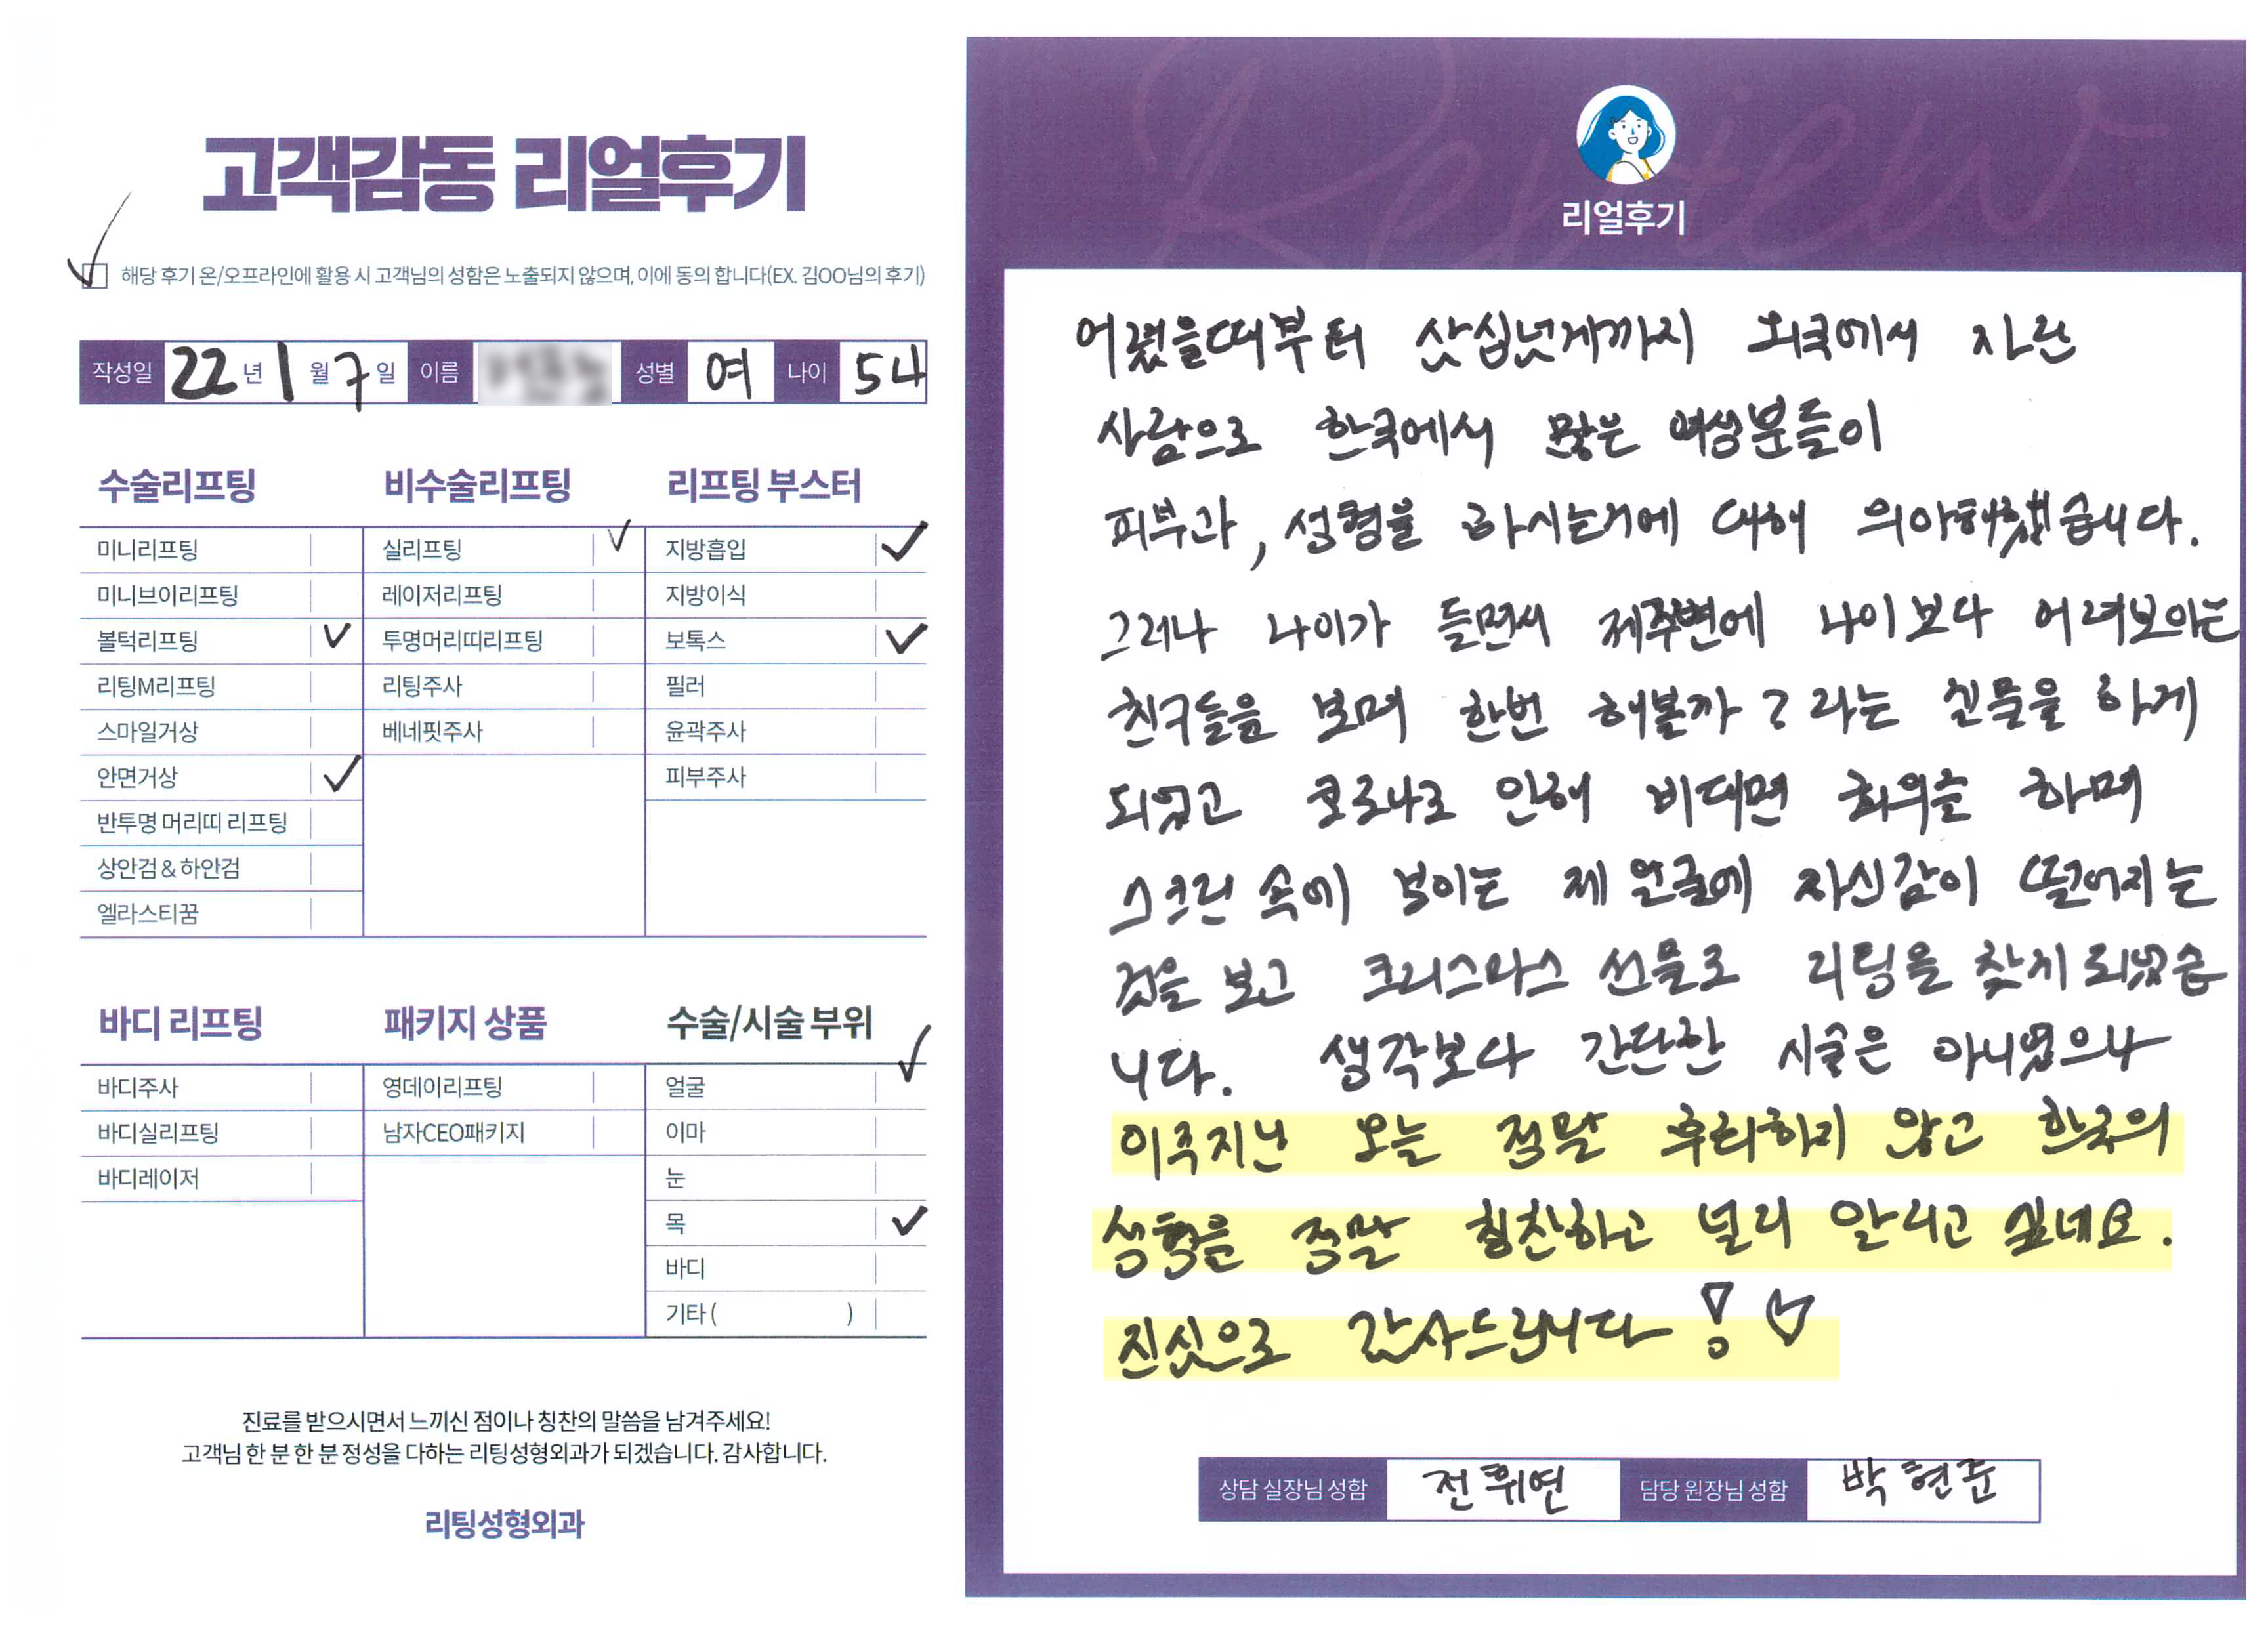 고객감동 리얼후기
해당 후기 온/오프라인에 활용 시 고객님의 성함은 노출되지 않으며, 이에 동의 합니다(EX. 김OO님의 후기)
작성일 22년 1월 7일 이름 성별 여 나이 54
수술리프팅
미니리프팅
미니브이리프팅
볼턱리프팅
리팅M리프팅
스마일거상
안면거상
반투명 머리띠 리프팅
상안검 & 하안검
엘라스티꿈
비수술리프팅
실리프팅
레이저리프팅
투명머리띠리프팅
리팅주사
베네핏주사
리프팅 부스터
지방흡입
지방이식
보톡스
필러
윤곽주사
피부주사
바디 리프팅
바디주사
바디실리프팅
바디레이저
패키지 상품
영데이리프팅
남자CEO패키지
수술/시술 부위
얼굴
이마
눈
목
바디
기타 ( )
진료를 받으시면서 느끼신 점이나 칭찬의 말씀을 남겨주세요!
고객님 한 분 한 분 정성을 다하는 리팅성형외과가 되겠습니다. 감사합니다.
리팅성형외과
Review
리얼후기
어렸을때부터 삼십넘게까지 외국에서 자란
사람으로 한국에서 많은 여성분들이
피부과, 성형을 하시는거에 대해 의아해했습니다.
그러나 나이가 들면서 제주변에 나이보다 어려보이는
친구들을 보며 한번 해볼까? 라는 질문을 하게
되었고 코로나로 인해 비대면 회의를 하며
스크린 속에 보이는 제 얼굴에 자신감이 떨어지는
것을 보고 크리스마스 선물로 리팅을 찾게 되었습
니다. 생각보다 간단한 시술은 아니었으나
이주지난 오늘 정말 후회하지 않고 한국의
성형을 정말 칭찬하고 널리 알리고 싶네요.
진심으로 감사드립니다! ♡
상담 실장님 성함 전휘연 담당 원장님 성함 박현준